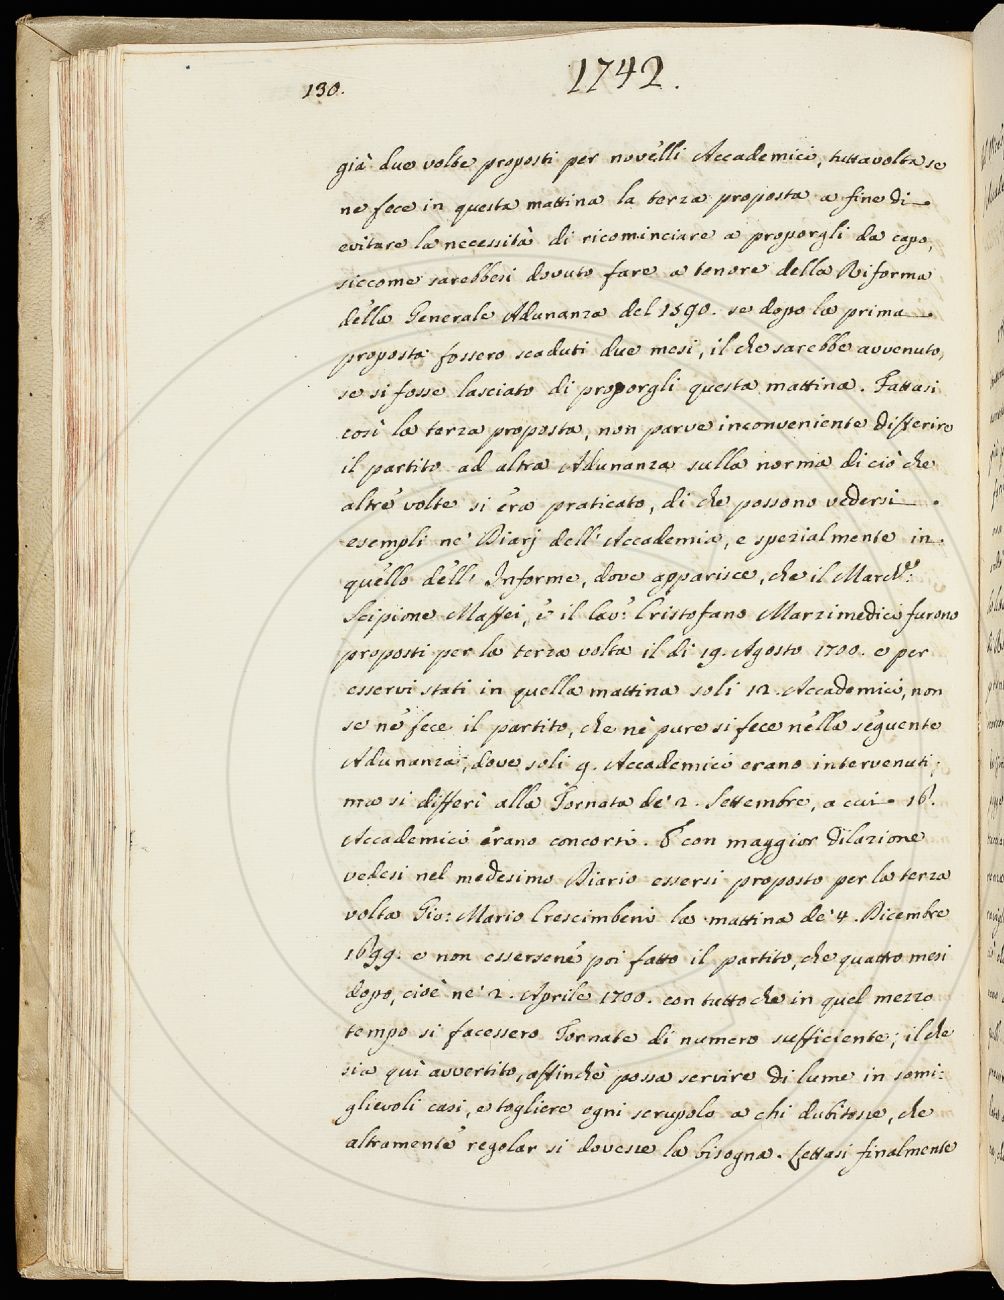 130.
1742.
già due volte proposti per novelli Accademici, tuttavolta se
ne fece in questa mattina la terza proposta a fine di
evitare la necessità di ricominciare a proporgli da capo,
siccome sarebbesi dovuto fare a tenore della Riforma
della Generale Adunanza del 1590. se dopo la prima
proposta fossero scaduti due mesi, il che sarebbe avvenuto,
se si fosse lasciato di proporgli questa mattina. Fattasi
così la terza proposta, non parve inconveniente differire
il partito ad altra Adunanza sulla norma di ciò che
altre volte si era praticato, di che possono vedersi
esempli ne' Diarj dell' Accademia, e spezialmente in
quello dell' Informe, dove apparisce, che il March.se
Scipione Maffei, e il Cav.e Cristofano Marzimedici furono
proposti per la terza volta il dì 19. Agosto 1700. e per
esservi stati in quella mattina soli 12. Accademici, non
se ne fece il partito, che nè pure si fece nella seguente
Adunanza, dove soli 9. Accademici erano intervenuti;
ma si differì alla Tornata de' 2. Settembre, a cui 16.
Accademici erano concorsi. E con maggior dilazione
vedesi nel medesimo Diario essersi proposto per la terza
volta Gio: Mario Crescimbeni la mattina de' 4. Dicembre
1699. e non essersene poi fatto il partito, che quattro mesi
dopo, cioè ne' 2. Aprile 1700. con tutto che in quel mezzo
tempo si facessero Tornate di numero sufficiente; il che
sia quì avvertito, affinchè possa servire di lume in somi=
glievoli casi, e togliere ogni scrupolo a chi dubitasse, che
altramente regolar si dovesse la bisogna. Lettasi finalmente